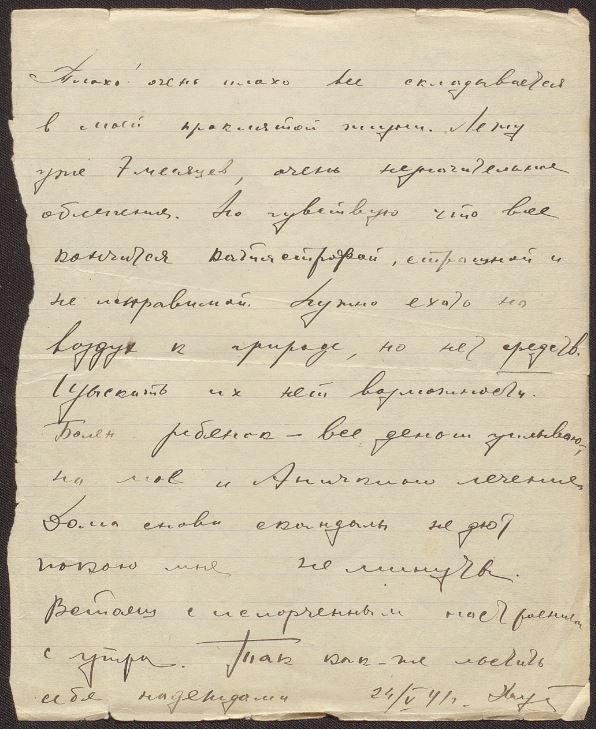 Плохо очень плохо все складывается
в моей проклятой жизни. Лежу
уже 7 месяцев, очень незначительное
облегчение. Но чувствую что все
кончится катастрофой, страшной и
не исправимой. Нужно ехать на
воздух к природе, но нет средств.
Изыскать их нет возможности.
Болен ребенок – все деньги
на мое и Аничкино лечение
Дома снова скандалы не дают
покою мне не минуты.
Встаеш с испорченным настроением
с утра. Так как-же льстить
себя надеждами 24/V 41г.